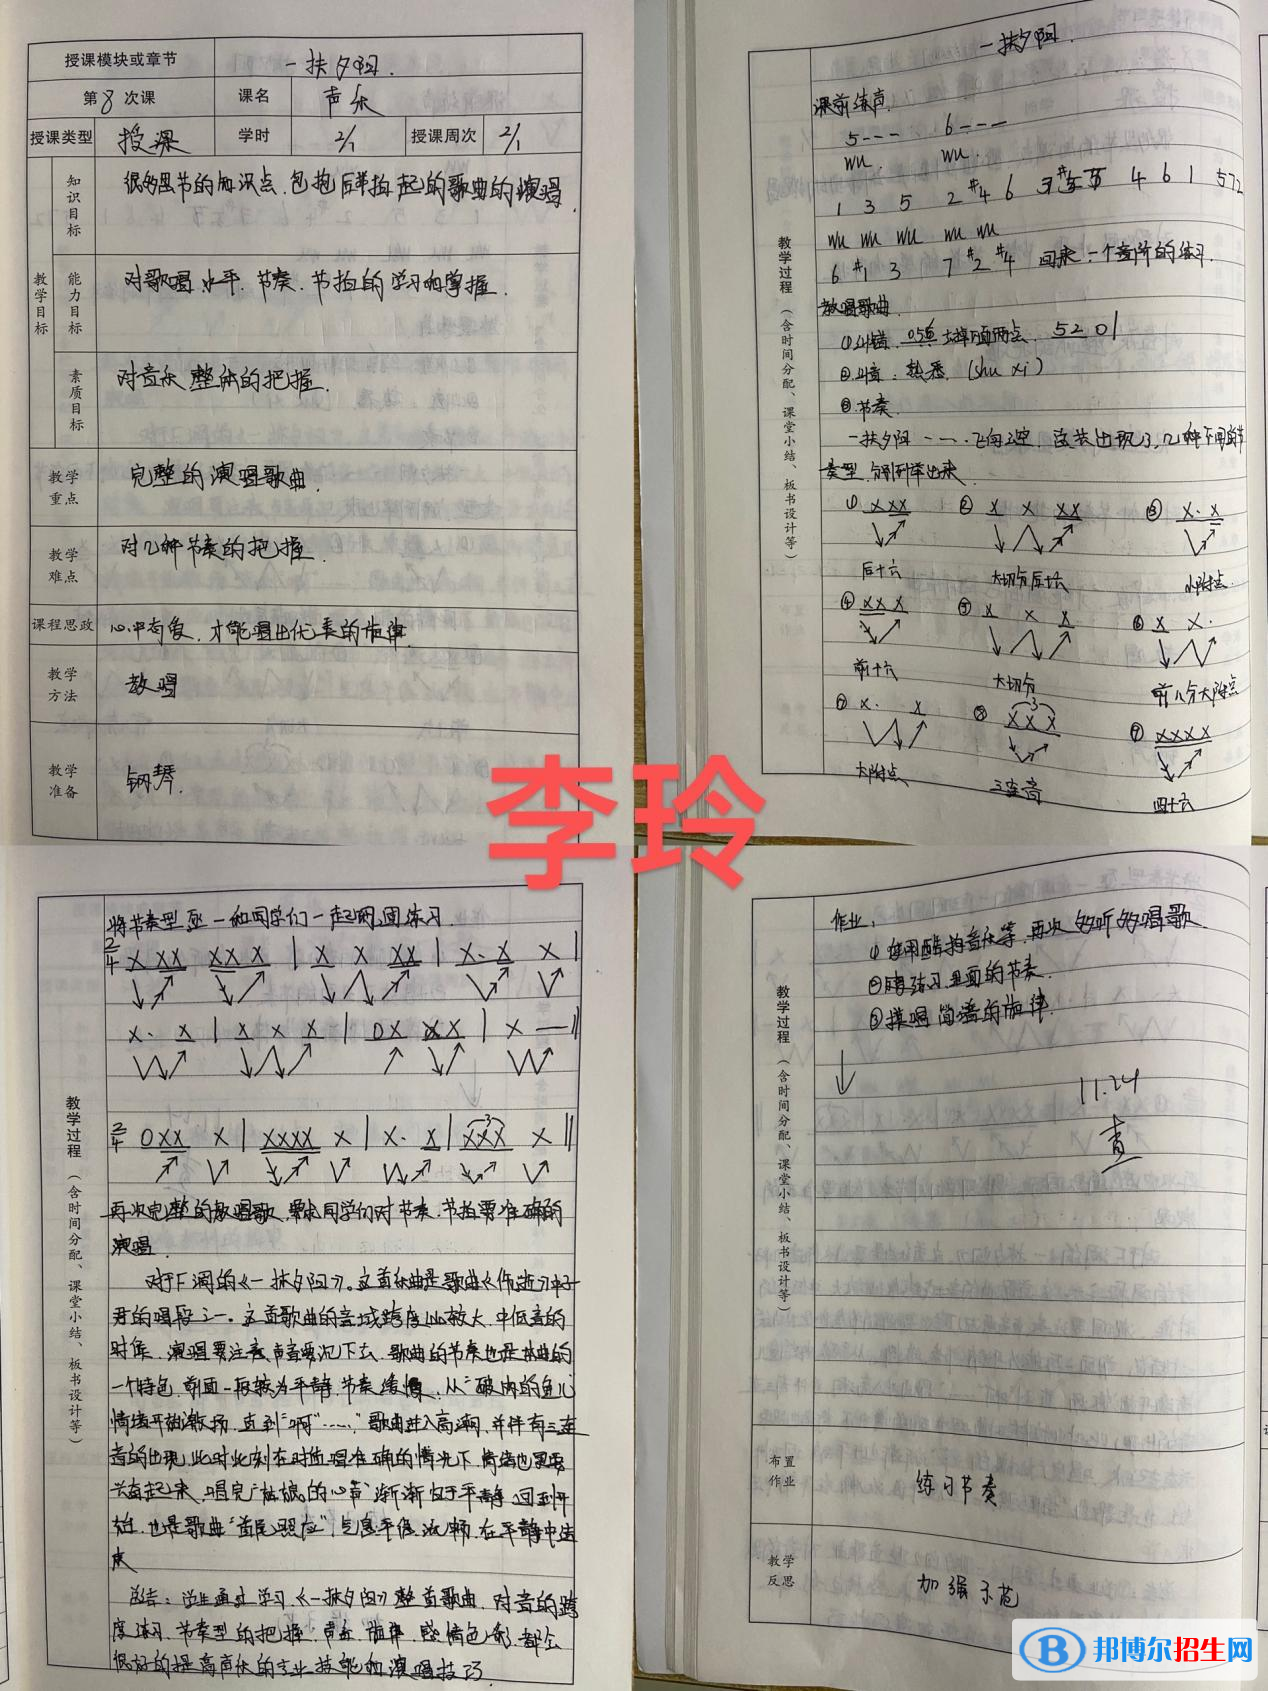 授课模块或章节 一抹夕阳.
第8次课 课名 声乐
授课类型 授课 学时 2/1 授课周次 2/1
教学目标
知识目标 很多里节的知识点.包括后半拍起的歌曲的演唱.
能力目标 对歌唱水平、节奏、节拍的学习和掌握.
素质目标 对音乐整体的把握.
教学重点 完整的演唱歌曲.
教学难点 对几种节奏的把握.
课程思政 心中有象,才能唱出优美的旋律.
教学方法 教唱
教学准备 钢琴.
一抹夕阳.
教学过程(含时间分配、课堂小结、板书设计等)
课前练声.
5--- 6---
wu. wu.
1 3 5 2 #4 6 4 6 1 572
wu wu wu wu wu
6 #1 3 7 #2 #4 回来一个音阶的练习.
教唱歌曲.
①纠错. 去掉下面两点. 5 2 0|
②纠音:熟悉.(shu xi)
③节奏.
一抹夕阳……飞向天空.这共出现了几种不同的节
奏型.分别列举出来.
① XXX ② X X XX ③ X. X
后十六 大切分后十六 小附点.
④ XXX ⑤ X X X ⑥ X X.
前十六 大切分 前八分大附点
⑦ X. X ⑧ XXX 3 ⑨ XXXX
大附点 三连音 四十六
李玲
教学过程(含时间分配、课堂小结、板书设计等)
将节奏型逐一和同学们一起巩固练习.
2/4 X XX XXX X | X X XX | X. X X |
X. X | X X X | 0X XX | X —||
2/4 0XX X | XXXX X | X. X | XXX 3 X ||
再次完整的教唱歌.要求同学们对节奏.节拍要准确的
演唱.
对于F调的《一抹夕阳》.这首乐曲是歌曲《伤逝》中子
君的唱段之一。这首歌曲的音域跨度比较大.中低音的
时候.演唱要注意声音要沉下去.歌曲的节奏也是本曲的
一个特色.前面一段较为平静.节奏缓慢.从"破内的鱼儿
情绪开始激扬.直到"啊"……"歌曲进入高潮.并伴有三连
音的出现.此时此刻在对位唱准确的情况下.情绪也要
兴奋起来.唱完"姑娘的心声"渐渐归于平静.回到开
始.也是歌曲"首尾照应".气息平稳.流畅.在平静中结
束
总结:学生通过学习《一抹夕阳》整首歌曲.对音的跨
度练习.节奏型的把握.声音.旋律.感情色彩.都会
很好的提高声乐的专业技能和演唱技巧.
教学过程(含时间分配、课堂小结、板书设计等)
作业:
①使用酷狗音乐等.再次多听多唱歌.
②练习里面的节奏.
③摸唱简谱的旋律.
11.24
查
布置作业 练习节奏
教学反思 加强示范
邦博尔招生网